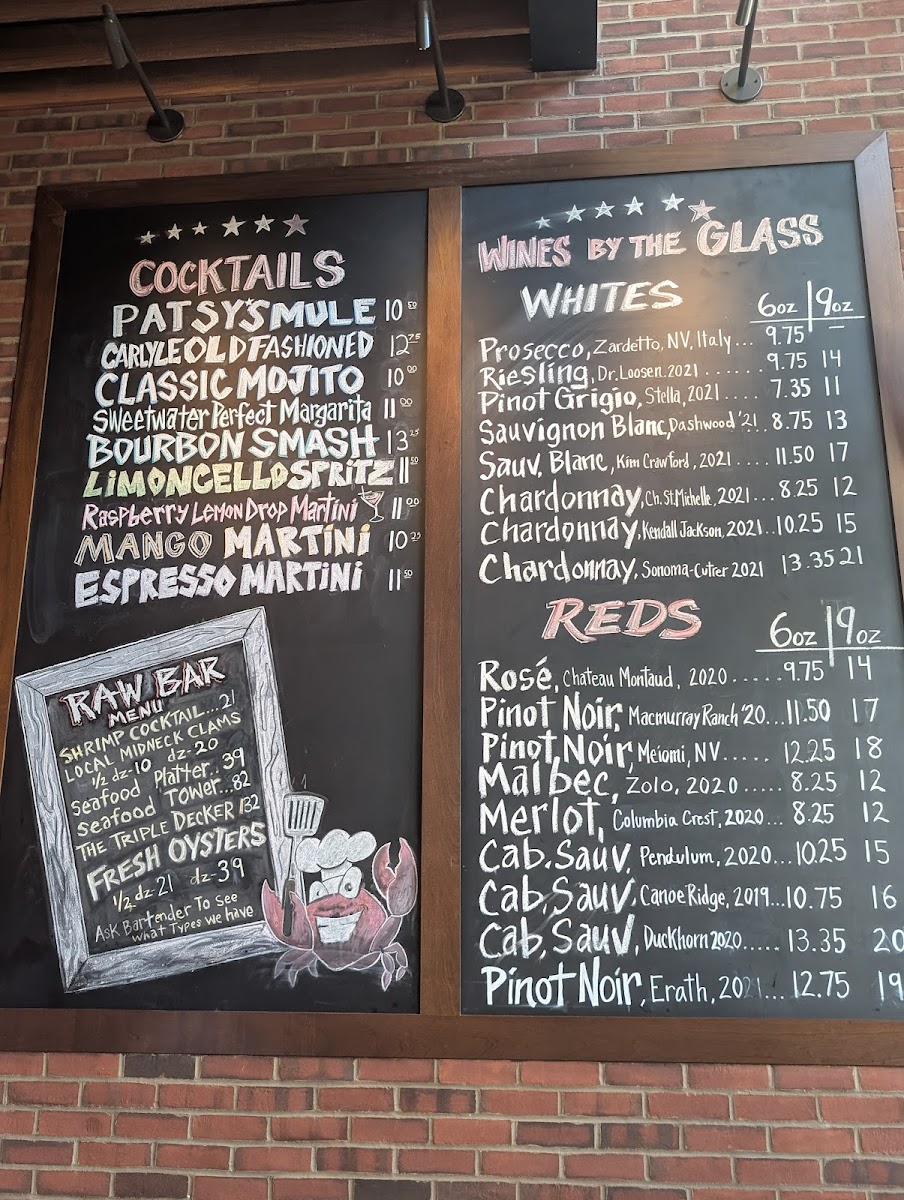 COCKTAILS
PATSY'S MULE 10 50
CARLYLE OLD FASHIONED 12 75
CLASSIC MOJITO 10 00
Sweetwater Perfect Margarita 11 00
BOURBON SMASH 13 25
LIMONCELLO SPRITZ 11 50
Raspberry Lemon Drop Martini 11 00
MANGO MARTINI 10 25
ESPRESSO MARTINI 11 50
RAW BAR
MENU
SHRIMP COCKTAIL...21
LOCAL MIDNECK CLAMS
1/2 dz-10 dz-20
Seafood Platter. 39
Seafood Tower...82
THE TRIPLE DECKER 132
FRESH OYSTERS
1/2 dz-21 dz-39
Ask Bartender To See
What Types We have
WINES BY THE GLASS
WHITES
6oz | 9oz
Prosecco, Zardetto, NV, Italy... 9.75 —
Riesling, Dr. Loosen. 2021 ...... 9.75 14
Pinot Grigio, Stella, 2021 .... 7.35 11
Sauvignon Blanc, Dashwood '21 .. 8.75 13
Sauv. Blanc, Kim Crawford, 2021 .... 11.50 17
Chardonnay, Ch. St. Michelle, 2021... 8.25 12
Chardonnay, Kendall Jackson, 2021..10.25 15
Chardonnay, Sonoma-Cutrer 2021 13.35 21
REDS
6oz | 9oz
Rosé, Chateau Montaud, 2020 .....9.75 14
Pinot Noir, Macmurray Ranch '20...11.50 17
Pinot Noir, Meiomi, NV..... 12.25 18
Malbec, Zolo, 2020 ..... 8.25 12
Merlot, Columbia Crest, 2020... 8.25 12
Cab. Sauv. Pendulum, 2020...10.25 15
Cab. Sauv. Canoe Ridge, 2019...10.75 16
Cab. Sauv, Duckhorn 2020..... 13.35 20
Pinot Noir, Erath, 2021... 12.75 19